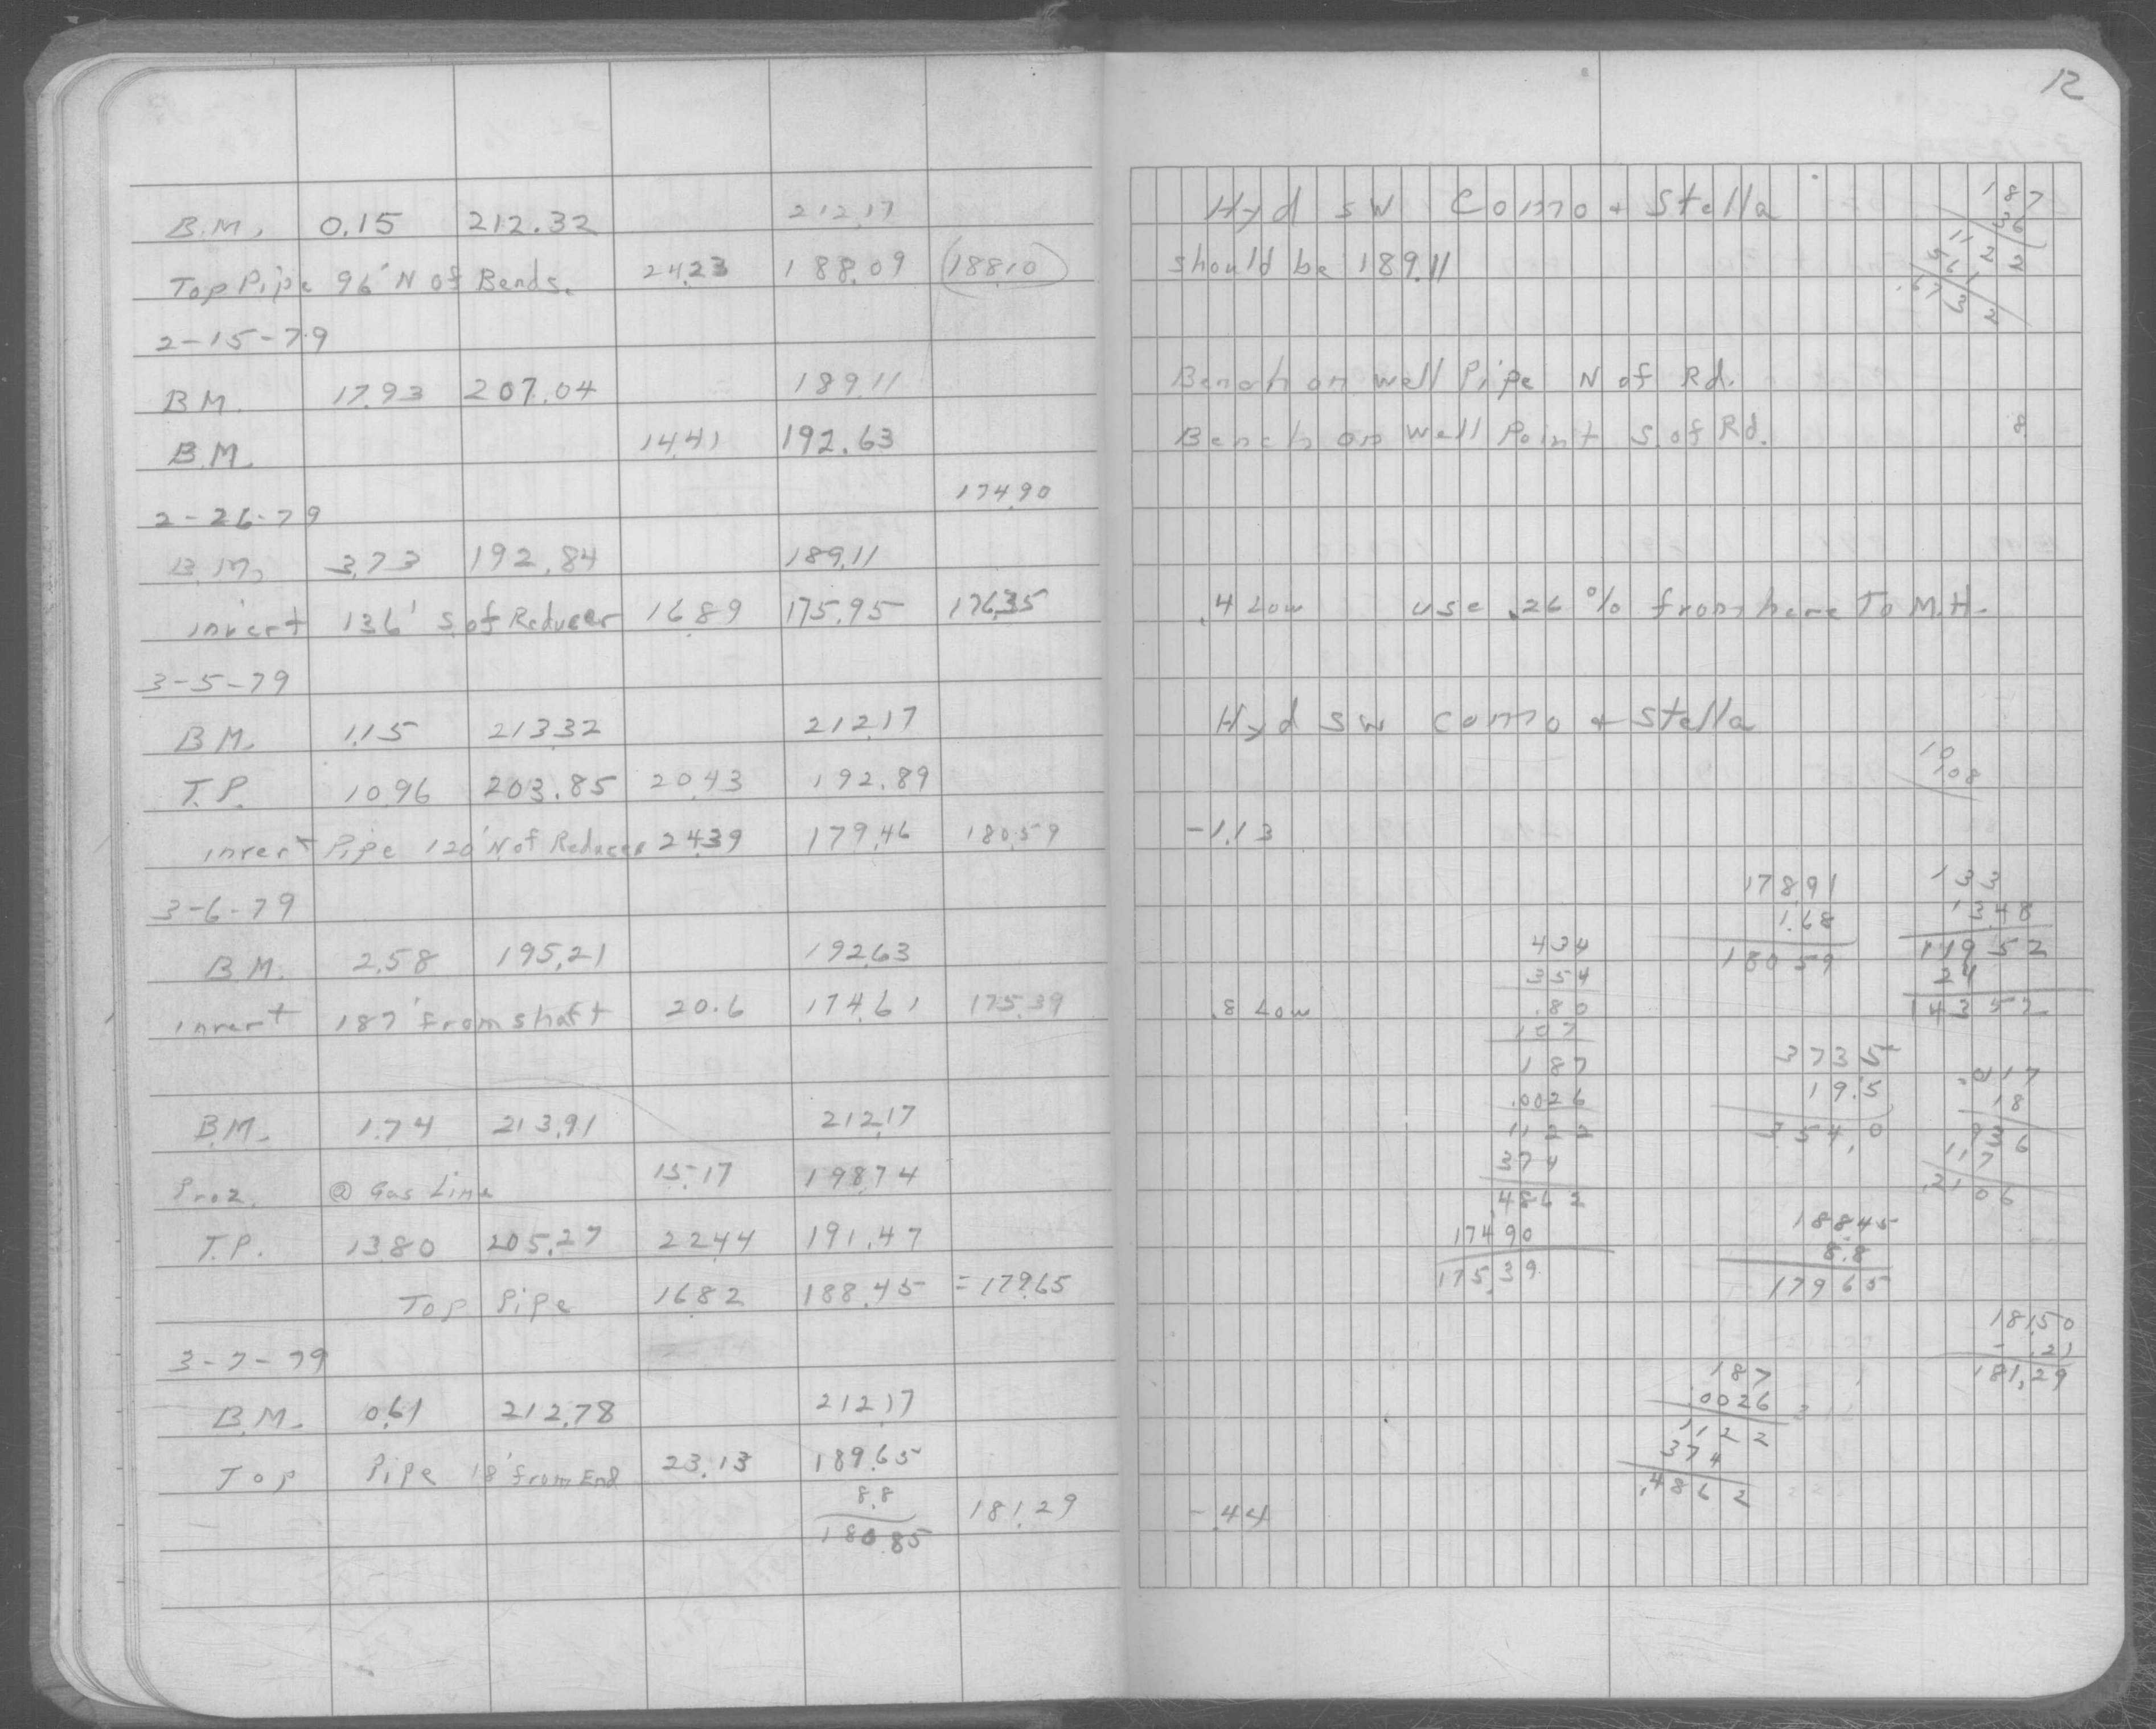 12
B.M. 0.15 212.32 212.17
Top Pipe 96' N of Bends. 24.23 188.09 (188.10)
2-15-79
B.M. 17.93 207.04 189.11
B.M. 14.41 192.63
174.90
2-26-79
B.M. 3.73 192.84 189.11
invert 136' S. of Reducer 16.89 175.95 176.35
3-5-79
B.M. 1.15 213.32 212.17
T.P. 10.96 203.85 20.43 192.89
invert Pipe 120' N of Reducer 24.39 179.46 180.59
3-6-79
B.M. 2.58 195.21 192.63
invert 187' from shaft 20.6 174.61 175.39
B.M. 1.74 213.91 212.17
@ Gas Line 15.17 198.74
T.P. 13.80 205.27 22.44 191.47
Top Pipe 16.82 188.45 = 179.65
3-7-79
B.M. 0.61 212.78 212.17
Top Pipe 18' from End 23.13 189.65
8.8 181.29
180.85
Hyd SW Como + Stella
should be 189.11
Bench on well Pipe N of Rd.
Bench on Well Point S. of Rd. 8
.4 Low use .26 % from here To M.H.
Hyd SW Como + Stella
10
108
-1.13
178.91
1.68
180.59
133
13.48
119 52
24
143 52
434
354
.80
107
187
.0026
1122
374
.4862
174.90
175.39
.8 Low
373 5
19.5
354.0
.0117
18
936
117
.2106
188.45
8.8
179.65
181.50
- .21
181.29
187
.0026
1122
374
.4862
-.44